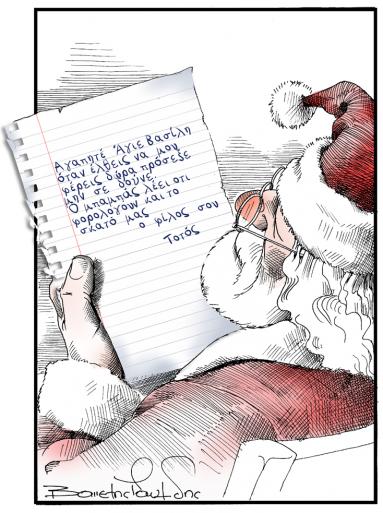 Αγαπητέ Άγιε Βασίλη
όταν έλθεις να μου
φέρεις δώρα πρόσεξε
μην σε δούνε.
Ο μπαμπάς λέει οτι
φορολογουν και το
σκατό μας
ο φίλος σου
Τοτός